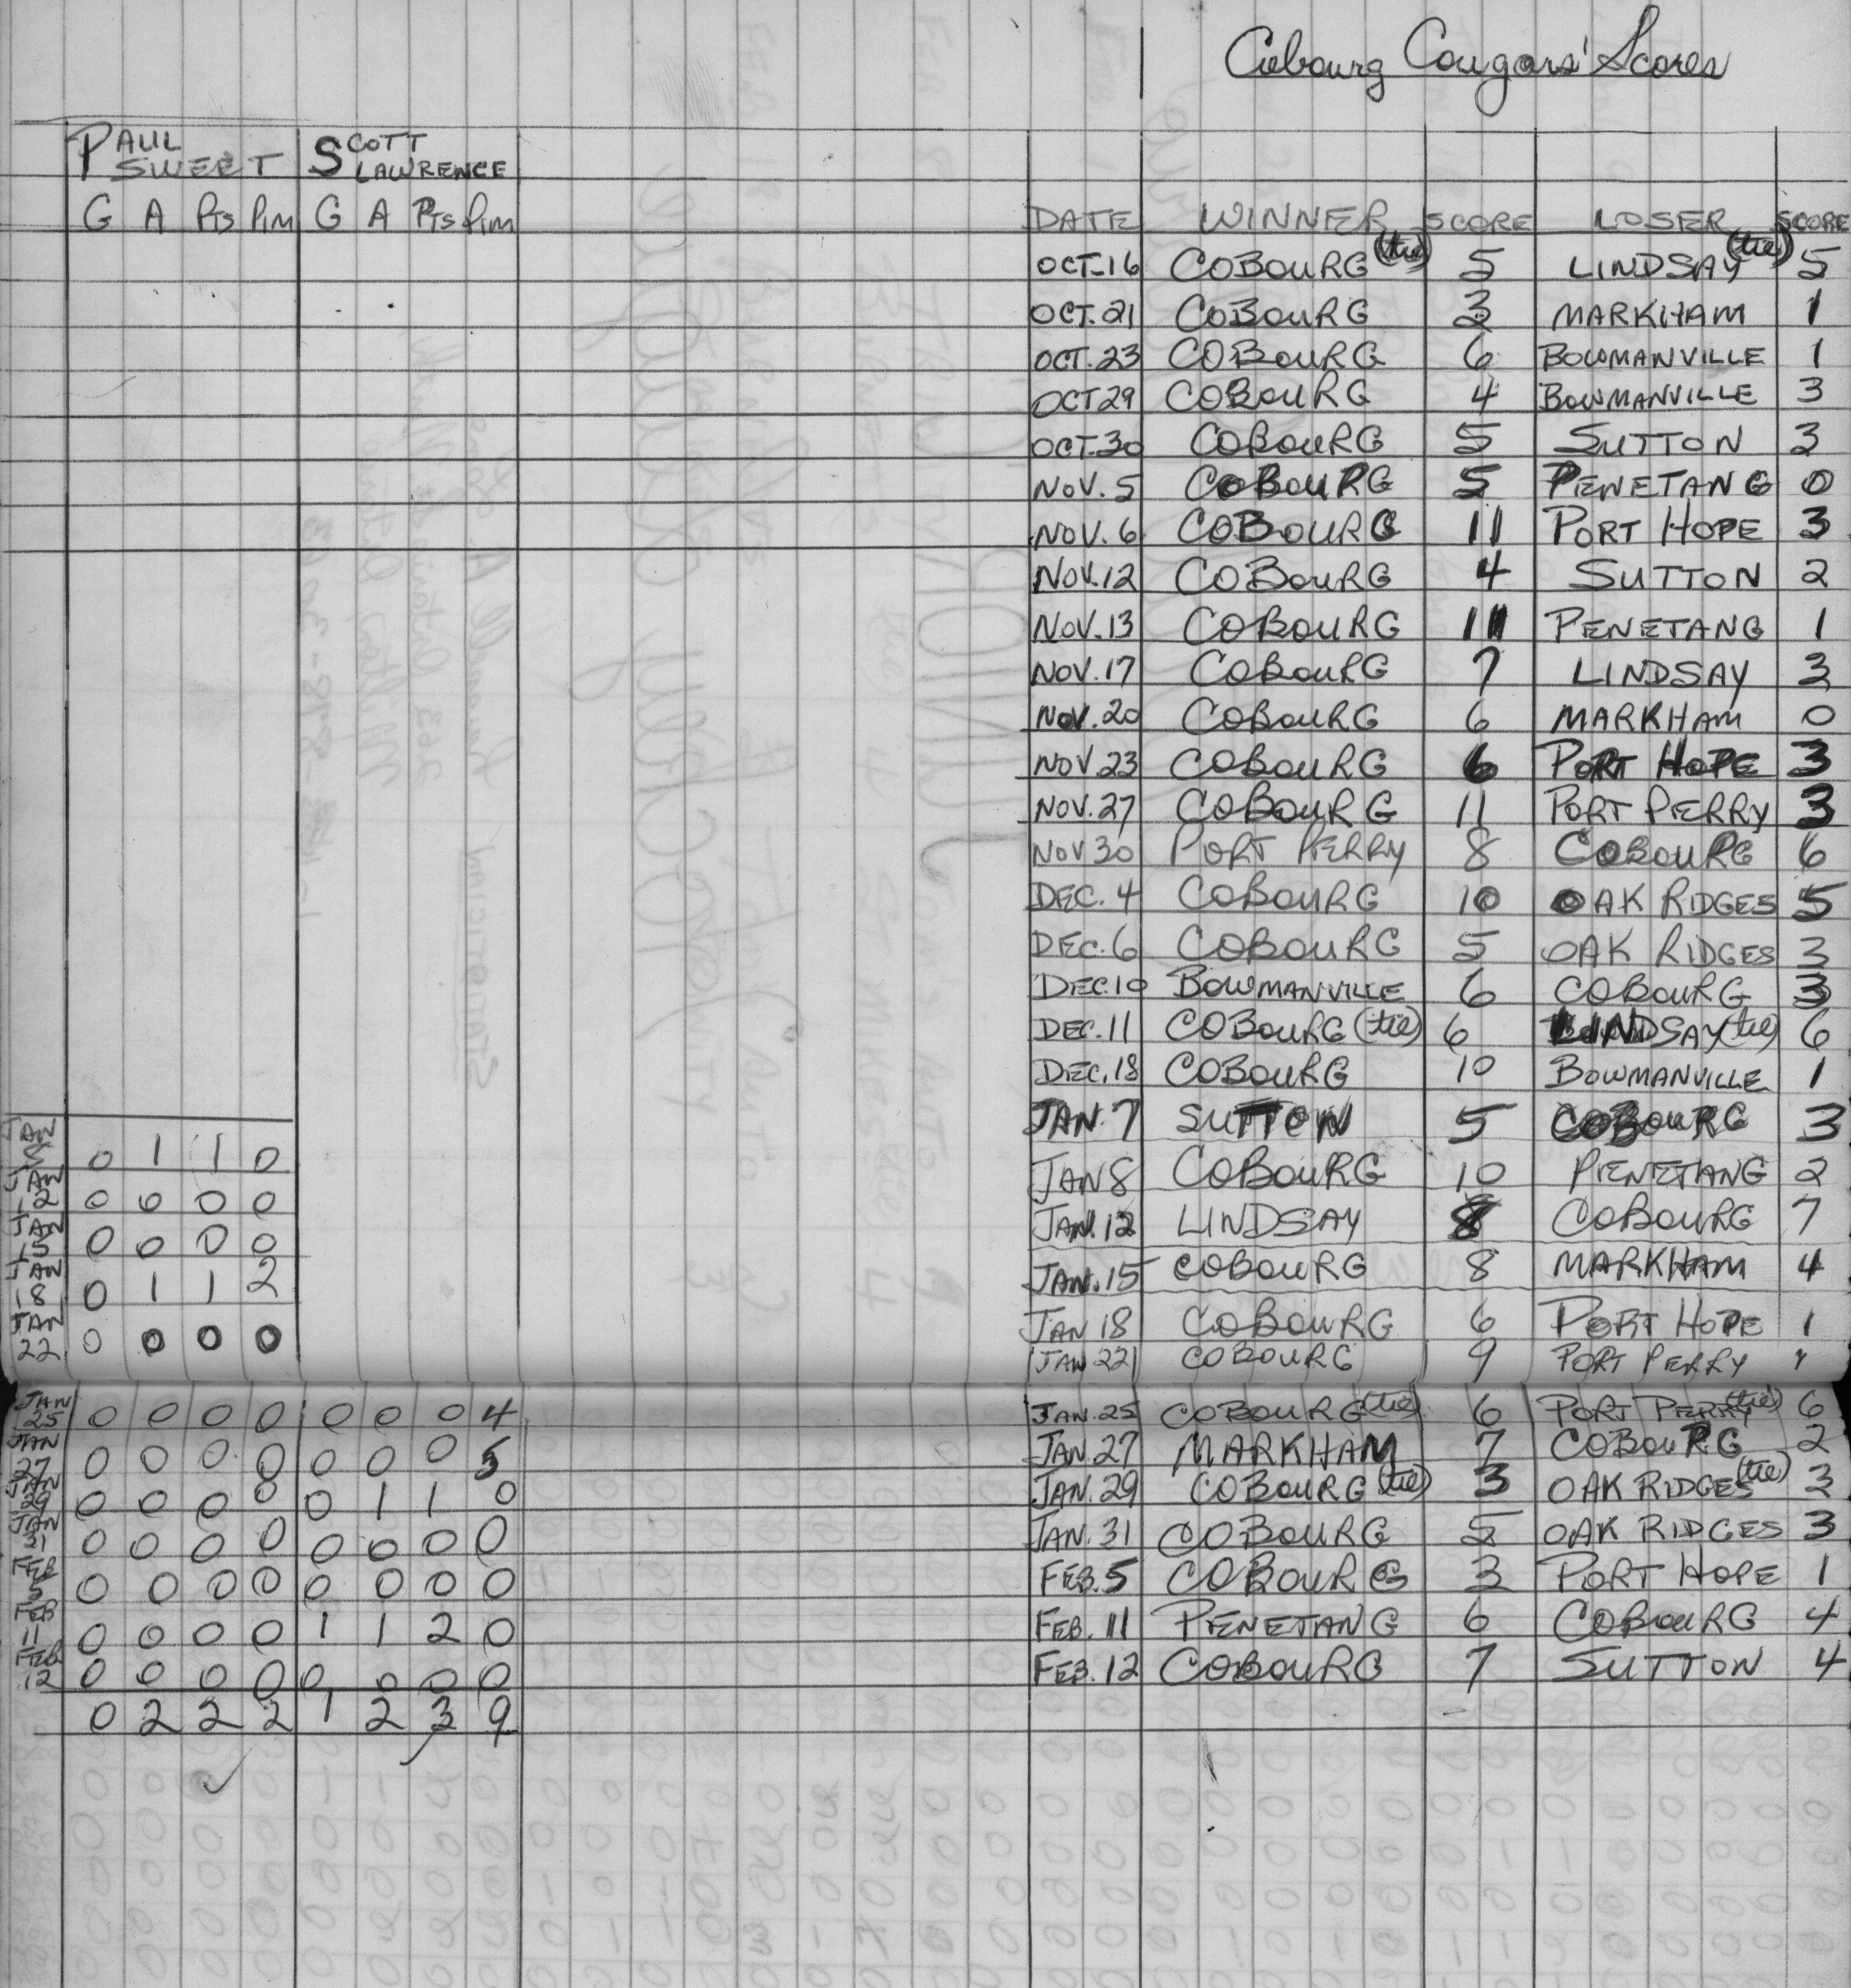 Cobourg Cougars' Scores
PAUL SWEET SCOTT LAWRENCE
G A Pts Pim G A Pts Pim
DATE WINNER SCORE LOSER SCORE
OCT. 16 COBOURG (tie) 5 LINDSAY (tie) 5
OCT. 21 COBOURG 3 MARKHAM 1
OCT. 23 COBOURG 6 BOWMANVILLE 1
OCT 29 COBOURG 4 BOWMANVILLE 3
OCT. 30 COBOURG 5 SUTTON 3
NOV. 5 COBOURG 5 PENETANG 0
NOV. 6 COBOURG 11 PORT HOPE 3
NOV. 12 COBOURG 4 SUTTON 2
NOV. 13 COBOURG 11 PENETANG 1
NOV. 17 COBOURG 7 LINDSAY 3
NOV. 20 COBOURG 6 MARKHAM 0
NOV 23 COBOURG 6 PORT HOPE 3
NOV. 27 COBOURG 11 PORT PERRY 3
NOV 30 PORT PERRY 8 COBOURG 6
DEC. 4 COBOURG 10 OAK RIDGES 5
DEC. 6 COBOURG 5 OAK RIDGES 3
DEC. 10 BOWMANVILLE 6 COBOURG 3
DEC. 11 COBOURG (tie) 6 LINDSAY (tie) 6
DEC. 18 COBOURG 10 BOWMANVILLE 1
JAN. 7 SUTTON 5 COBOURG 3
JAN 0 1 1 0 JAN 8 COBOURG 10 PENETANG 2
JAN 12 0 0 0 0 JAN. 12 LINDSAY 8 COBOURG 7
JAN 15 0 0 0 0 JAN. 15 COBOURG 8 MARKHAM 4
JAN 18 0 1 1 2 JAN 18 COBOURG 6 PORT HOPE 1
JAN 22 0 0 0 0 JAN 22 COBOURG 9 PORT PERRY
JAN 25 0 0 0 0 0 0 0 4 JAN. 25 COBOURG (tie) 6 PORT PERRY (tie) 6
JAN 27 0 0 0 0 0 0 0 5 JAN. 27 MARKHAM 7 COBOURG 2
JAN 29 0 0 0 0 0 1 1 0 JAN. 29 COBOURG (tie) 3 OAK RIDGES (tie) 3
JAN 31 0 0 0 0 0 0 0 0 JAN. 31 COBOURG 5 OAK RIDGES 3
FEB 5 0 0 0 0 0 0 0 0 FEB. 5 COBOURG 3 PORT HOPE 1
FEB 11 0 0 0 0 1 1 2 0 FEB. 11 PENETANG 6 COBOURG 4
FEB 12 0 0 0 0 0 0 0 0 FEB. 12 COBOURG 7 SUTTON 4
0 2 2 2 1 2 3 9